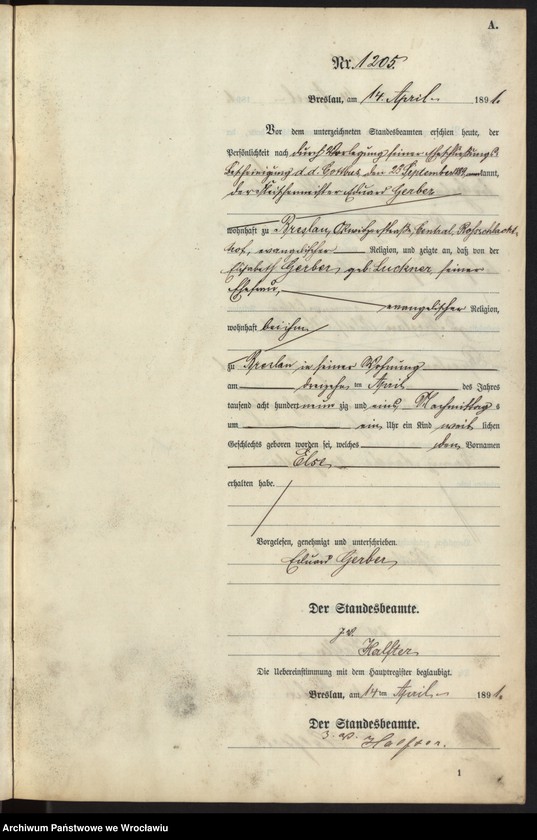 A.
Nr. 1205.
Breslau, am 14. April 1891.
Vor dem unterzeichneten Standesbeamten erschien heute, der
Persönlichkeit nach durch Vorlegung seiner Eheschließungs-
Bescheinigung d.d. Cottbus den 23 September kannt,
der Eduard Gerber
wohnhaft zu Breslau, Oswitzerstraße, Central,
hof, evangelischer Religion, und zeigte an, daß von der
Elisabeth Gerber geb. Luckner, seiner
Ehefrau,
evangelischer Religion,
wohnhaft bei ihm
zu Breslau in seiner Wohnung
am dreizehn ten April des Jahres
tausend acht hundert neun zig und eins Nachmittag s
um ein Uhr ein Kind weib lichen
Geschlechts geboren worden sei, welches den Vornamen
Else
erhalten habe.
Vorgelesen, genehmigt und unterschrieben.
Eduard Gerber
Der Standesbeamte.
Halfter
Die Uebereinstimmung mit dem Hauptregister beglaubigt.
Breslau, am 14 ten April 1891.
Der Standesbeamte.
Halfter.
1
Archiwum Państwowe we Wrocławiu